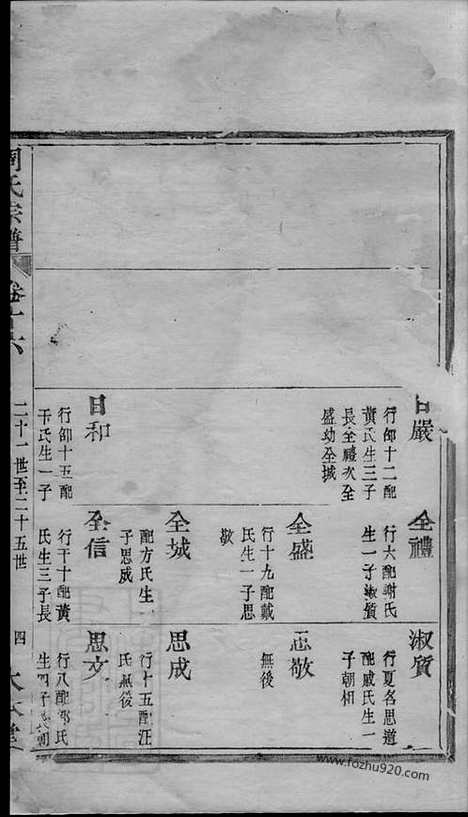 嚴
行邰十二配
黃氏生三子
長全禮次全
盛幼全城
全禮
行六配謝氏
生一子淑質
淑質
行夏名思道
配戚氏生一
子朝相
全盛
行十九配戴
氏生一子思
敬
思敬
無後
全城
配方氏生
子思成
思成
行十五配汪
氏無後
日和
行邰十五配
氏生一子
全信
行干十配黃
氏生三子長
思文
行八配鄭氏
生四子
氏宗譜
卷十六
二十一世至二十五世
四
www.fozhu920.com